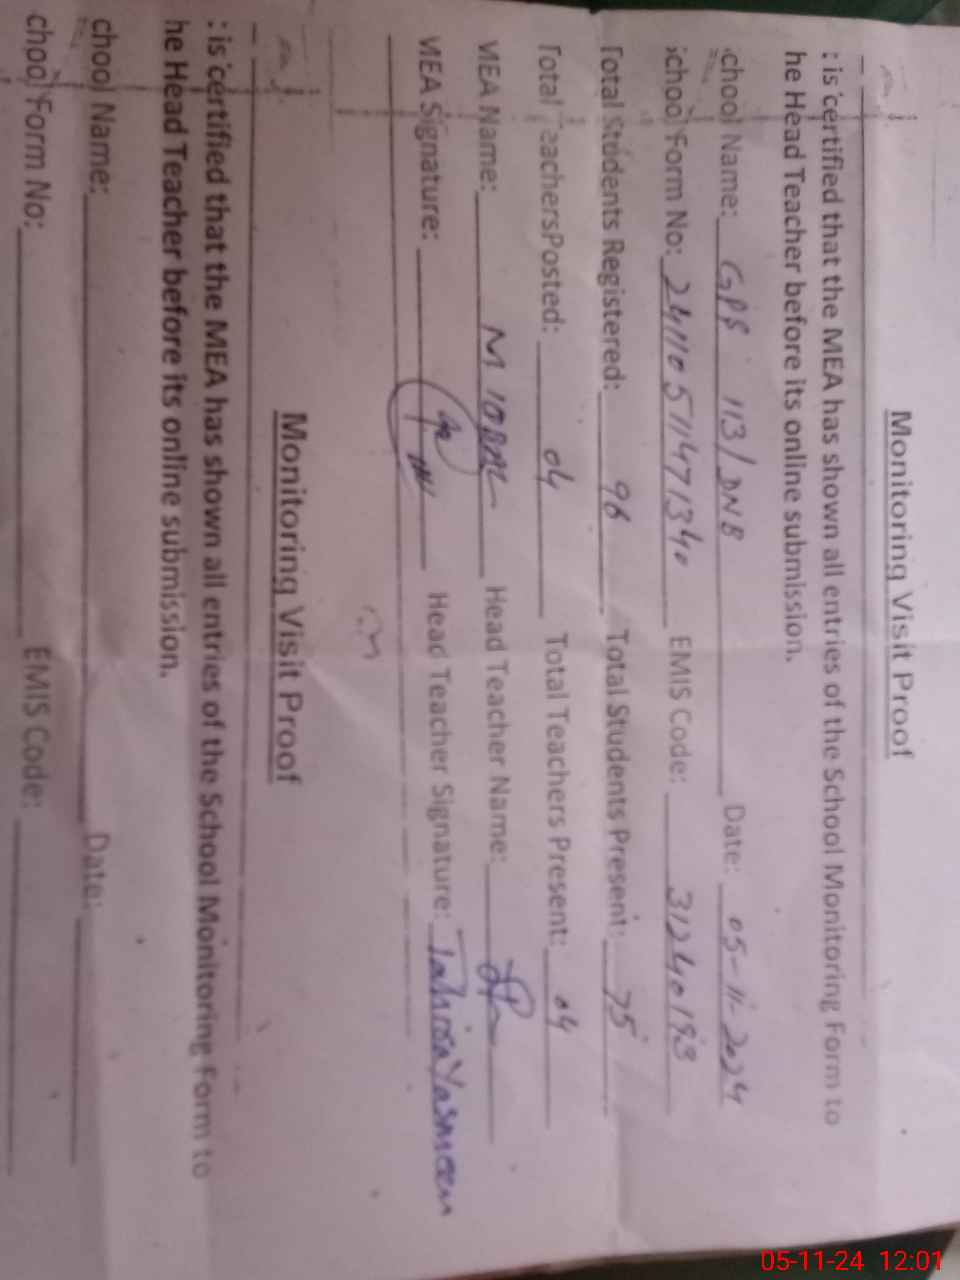 Monitoring Visit Proof
: is certified that the MEA has shown all entries of the School Monitoring Form to
he Head Teacher before its online submission.
chool Name: GPS 113/DNB Date: 05-11-2024
School Form No: 24110511471340 EMIS Code: 31240193
Total Students Registered: 96 Total Students Present: 75
Total TeachersPosted: 04 Total Teachers Present: 04
MEA Name: M IQBAL Head Teacher Name:
MEA Signature: Head Teacher Signature: Tahira Yasmeen
Monitoring Visit Proof
: is certified that the MEA has shown all entries of the School Monitoring Form to
he Head Teacher before its online submission.
chool Name: Date:
chool Form No: EMIS Code:
05-11-24 12:01